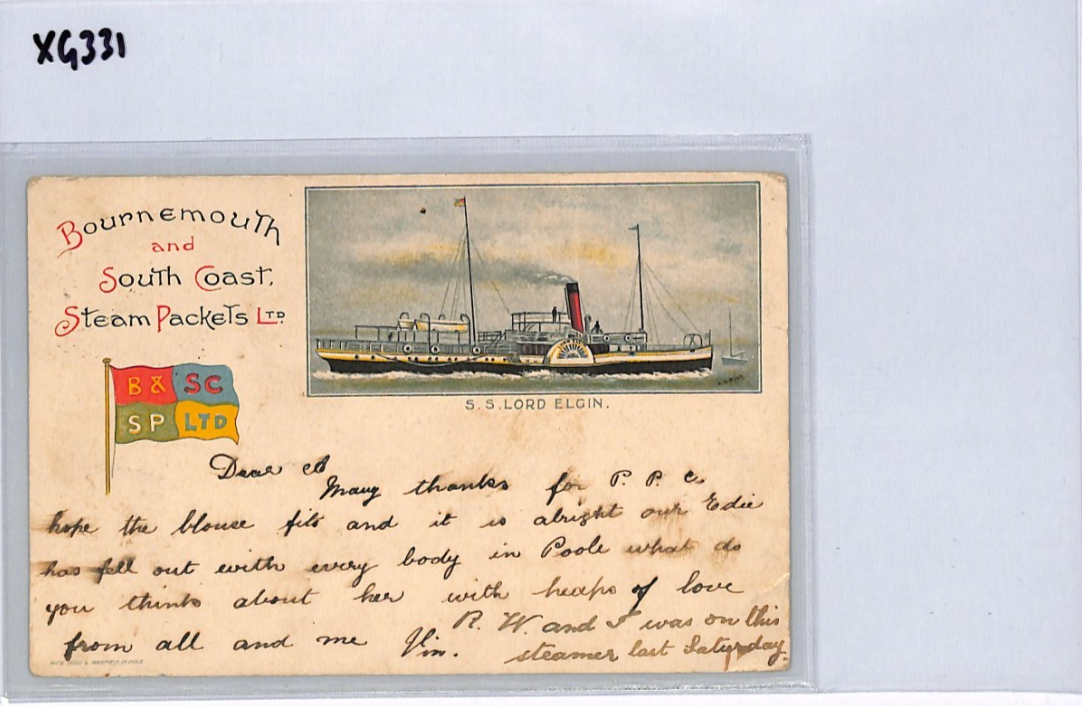 XG331
Bournemouth
and
South Coast,
Steam Packets LTD
B & SC
SP LTD
S.S. LORD ELGIN.
Dear A
Many thanks for P. P. C.
hope the blouse fits and it is alright our Edie
has fell out with every body in Poole what do
you thinks about her with heaps of love
from all and me Vin.
R. W. and I was on this
steamer last Saturday